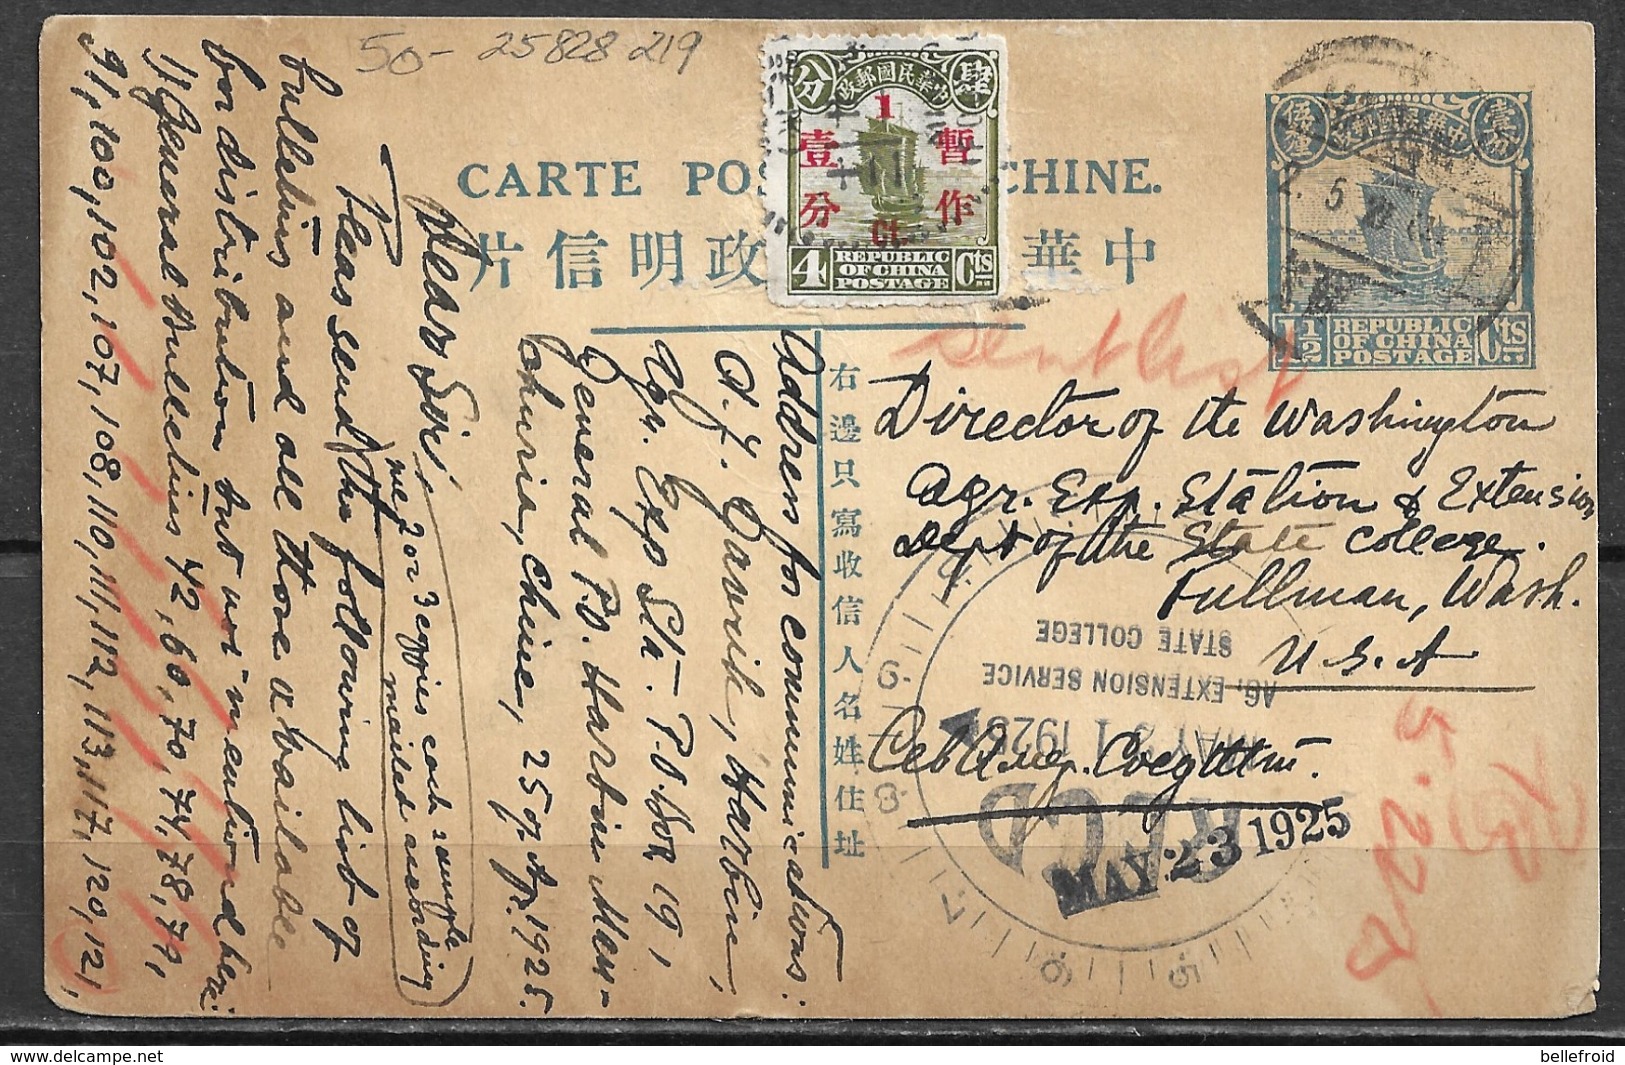 50- 25828 219
CARTE POS CHINE.
片信明政 華中
分 政郵國民華中 肆
1
暫作
壹分
Ct.
4 REPUBLIC OF CHINA POSTAGE Cts
1½ REPUBLIC OF CHINA POSTAGE Cts
5
右邊只寫收信人名姓住址
Director of the Washington
Agr. Exp. Station & Extension
Dept of the State College.
Pullman, Wash.
U.S.A
MAY 23 1925
AG. EXTENSION SERVICE
STATE COLLEGE
REC'D
5-22-25
Address for communications:
A. J. Jawrik, Harbin,
Agr. Exp Sta. P.O. Box 191
General P.O. Harbin Man-
churia, China, 25 of Ap. 1925.
Dear Sir,
Pleas send me 2 or 3 copies each sample
(the following list of
mailed according)
bulletins and all those available
for distribution but not mentioned here:
1/ General Bulletins 42, 60, 70, 74, 78, 79,
91, 100, 102, 107, 108, 110, 111, 112, 113, 117, 120, 121,
bellefroid